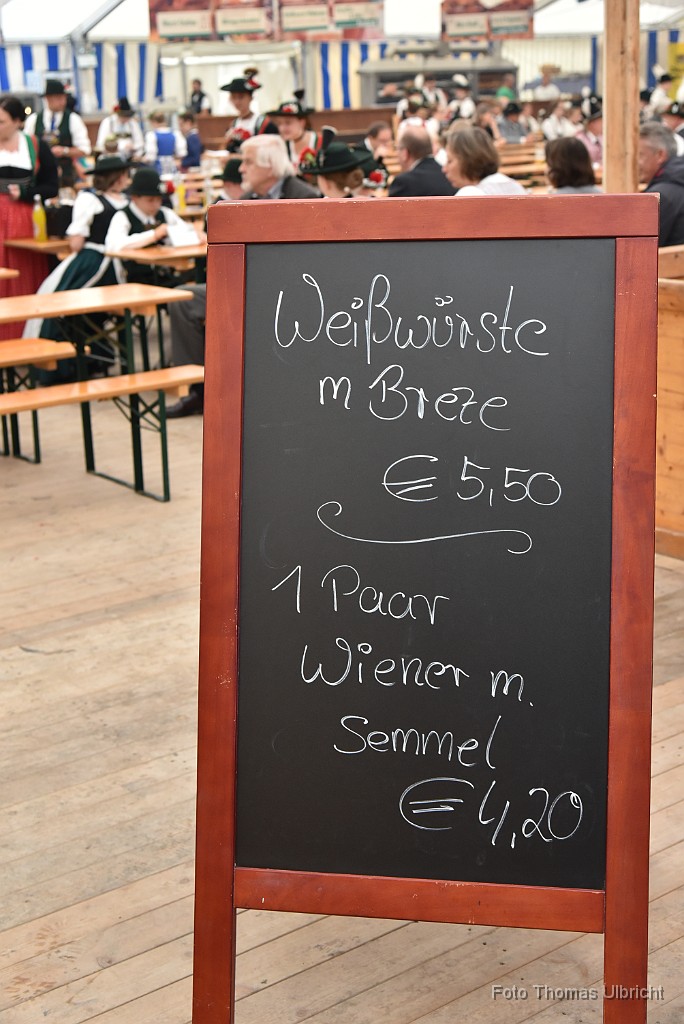 Weißwürste
m Breze
€ 5,50
1 Paar
Wiener m.
Semmel
€ 4,20
Foto Thomas Ulbricht